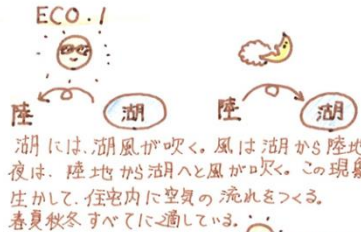 ECO.1
陸 湖 陸 湖
湖には、湖風が吹く。風は湖から陸地
夜は、陸地から湖へと風が吹く。この現象
生かして、住宅内に空気の流れをつくる。
春夏秋冬すべてに適している。